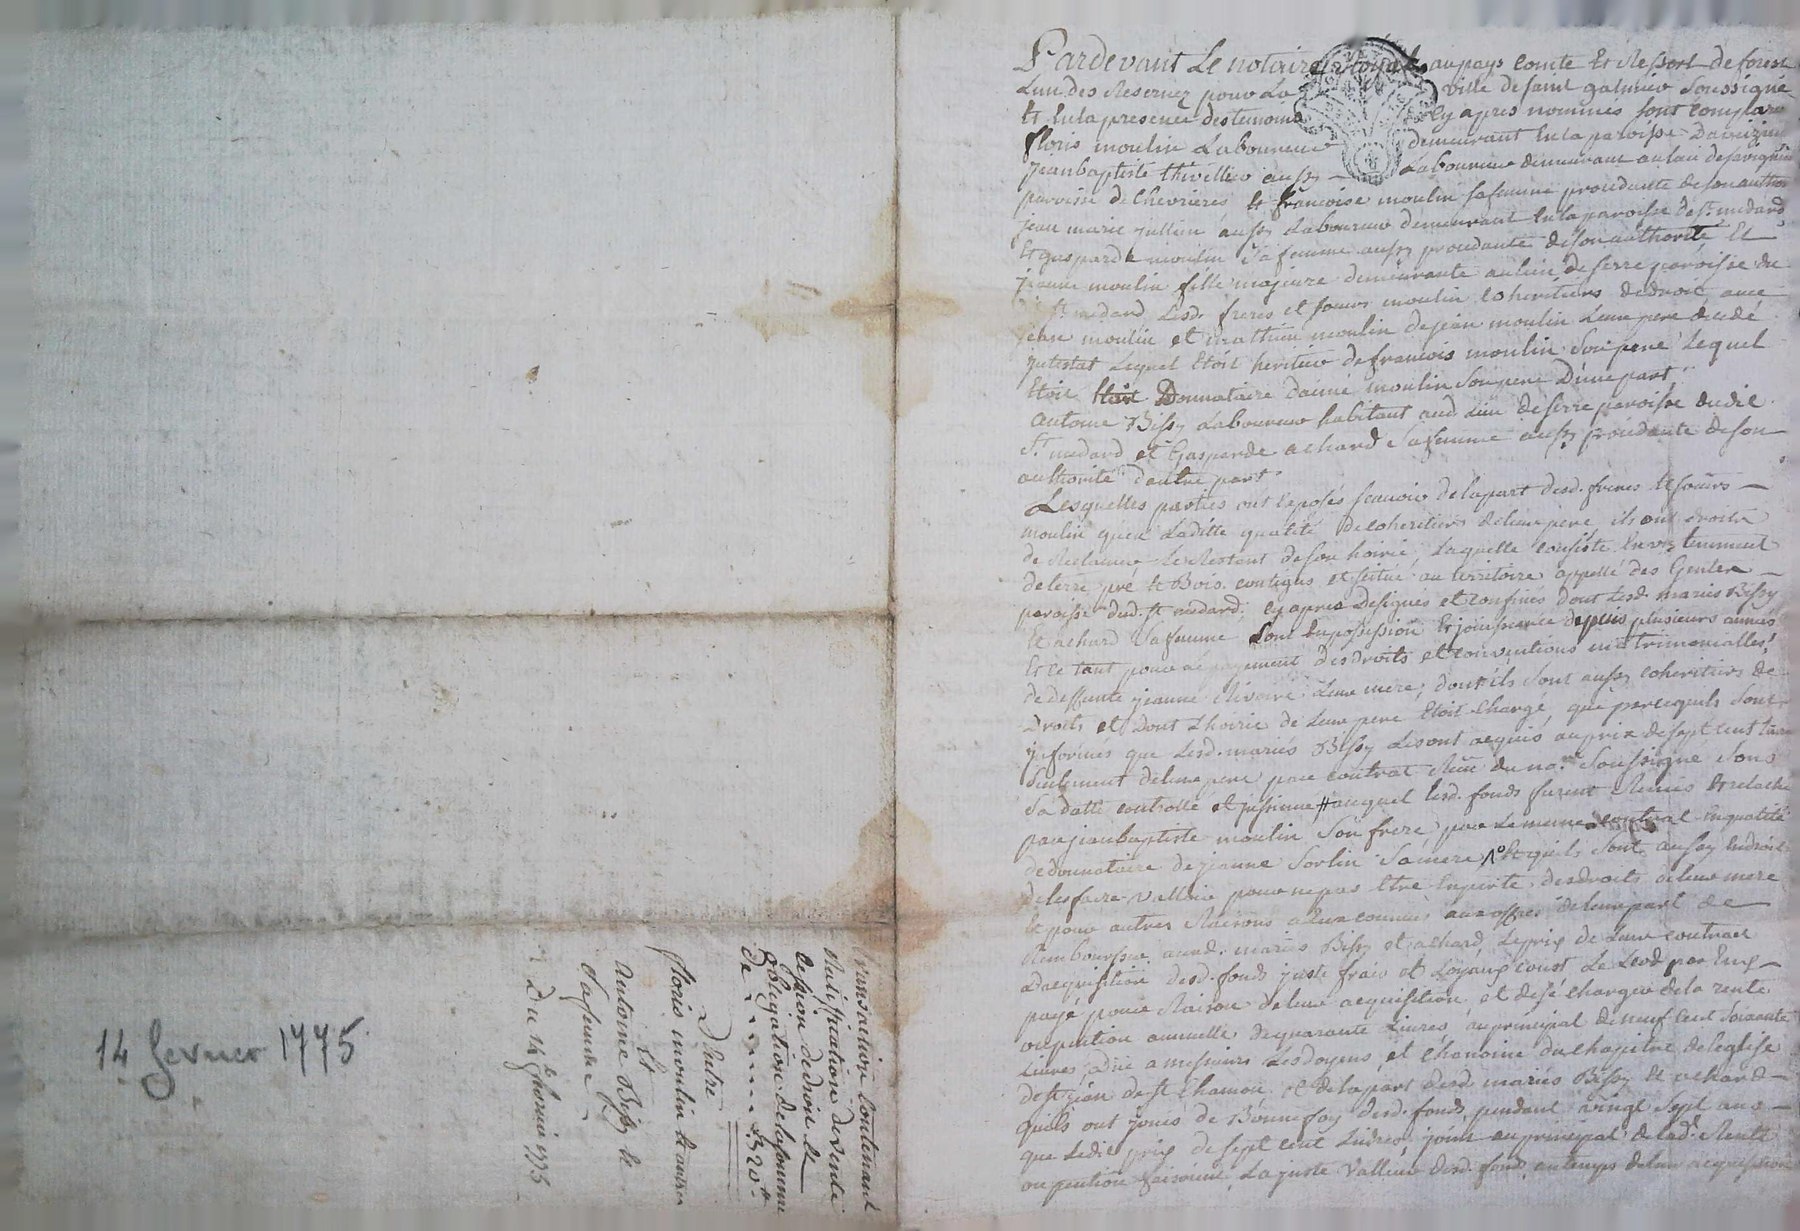 Pardevant Le notaire Royal au pays comté Et Ressort de forest
Lun des Reservez pour La ville de saint galmier Soussigné
Et En la presence des temoins Cy apres nommés sont comparu
floris moulin Laboureur demeurant En la paroisse Daveizieu
jean baptiste thivillier aussy Laboureur demeurant au lieu de
paroisse de Chevrieres Et francoise moulin sa femme procedante de son authorité
jean marie jullien aussy Laboureur demeurant En la paroisse de St. medard
Et gasparde moulin Sa femme aussy procedante de son authorité Et
jeanne moulin fille majeure demeurante au lieu de serre paroisse du
St. medard, Lesd. freres et sœurs moulin coheritiers de droit avec
moulin et mathieu moulin de jean moulin Leur pere decedé
intestat Lequel Etoit heritier de francois moulin Son pere Lequel
Etoit Donnataire daimé moulin Son pere D'une part
Antoine Bissy Laboureur habitant aud. Lieu de serre paroisse dudit
St. medard et Gasparde achard Sa femme aussy procedante de son
authorité dautre part
Lesquelles parties ont exposés scavoir de la part desd. freres Et sœurs
moulin qu'en Laditte qualité de coheritiers de leur pere, ils ont droits
de Reclamer Le Restant de son hoirie, Laquelle consiste En un tennement
de terre, pré Et Bois contigus et scitué au territoire appellé des
paroisse dud. St. medard, cy apres Designés et confinés dont Lesd. mariés Bissy
Et achard Sa femme Sont En possession Et jouissance depuis plusieurs années
Et ce tant pour le payement des droits et conventions matrimonialles
de deffunte jeanne Rivoire Leur mere, dont ils sont aussy coheritiers de
Droits et dont Lhoirie de Leur pere Etoit chargé, que parcequils sont
informés que Lesd. mariés Bissy Les ont acquis au prix de sept cent livres
Seulement de leur pere par contrat Reçu du no.re Soussigné Sous
Sa datte controllé et insinué # auquel Lesd. fonds furent Remis Et relaché
par jean baptiste moulin Son frere par Le meme contrat En qualité
de donnataire de jeanne Sorlin Sa mere Et quils sont aussy En droit
de les faire valloir pour ne pas Etre En perte des droits de leur mere
Et pour autres Raisons a Eux connues aux offres de leur part de
Rembourser auxd. mariés Bissy et achard, Le prix de Leur contrat
Dacquisition desd. fonds juste frais et Loyaux coust Le Lods par Eux
payé pour Raison de leur acquisition, et de se charger de la rente
ou pention annuelle de quarante Livres au principal de neuf cent soixante
Livres düe a messieurs Les doyens, et chanoine du chapitre de leglise
de St. jean de St. Chamon, et de la part desd. mariés Bissy Et achard
quils ont jouis de Bonne foy desd. fonds, pendant vingt sept ans
que Ledit prix de sept cent Livres, joint au principal de lad. Rente
ou pention faisoient La juste valleur desd. fonds au temps de leur acquisition
transaction contenant
Ratiffication de vente
cession de droit Et
obligation de la somme
de 1320
D'Entre
floris moulin et autres
Et
Antoine Bissy Et
Sa femme
Du 14 fevrier 1775
14 fevrier 1775